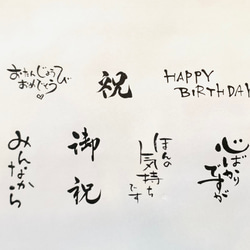 おたんじょうび
おめでとう
祝
HAPPY
BIRTHDAY
みんなから
御祝
ほんの
気持ち
です
心ばかり
ですが